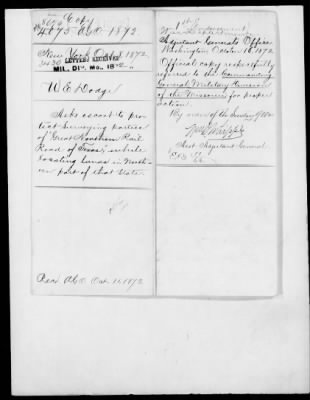 Copy
4075 AGO 1872
New York Oct 8 1872
LETTERS RECEIVED
MIL. DIV. MO. 1872
W E Dodge
Asks escort to pro-
tect surveying parties
of Great Northern Rail
Road of Texas, while
locating lands in North-
ern part of that State.
Recd AGO Oct 16 1872
1st Indorsement
War Department
Adjutant General's Office
Washington October 18, 1872.
Official copy respectfully
referred to the Commanding
General Military Division
of the Missouri for proper
action.
By order of the Secretary of War
Asst Adjutant General